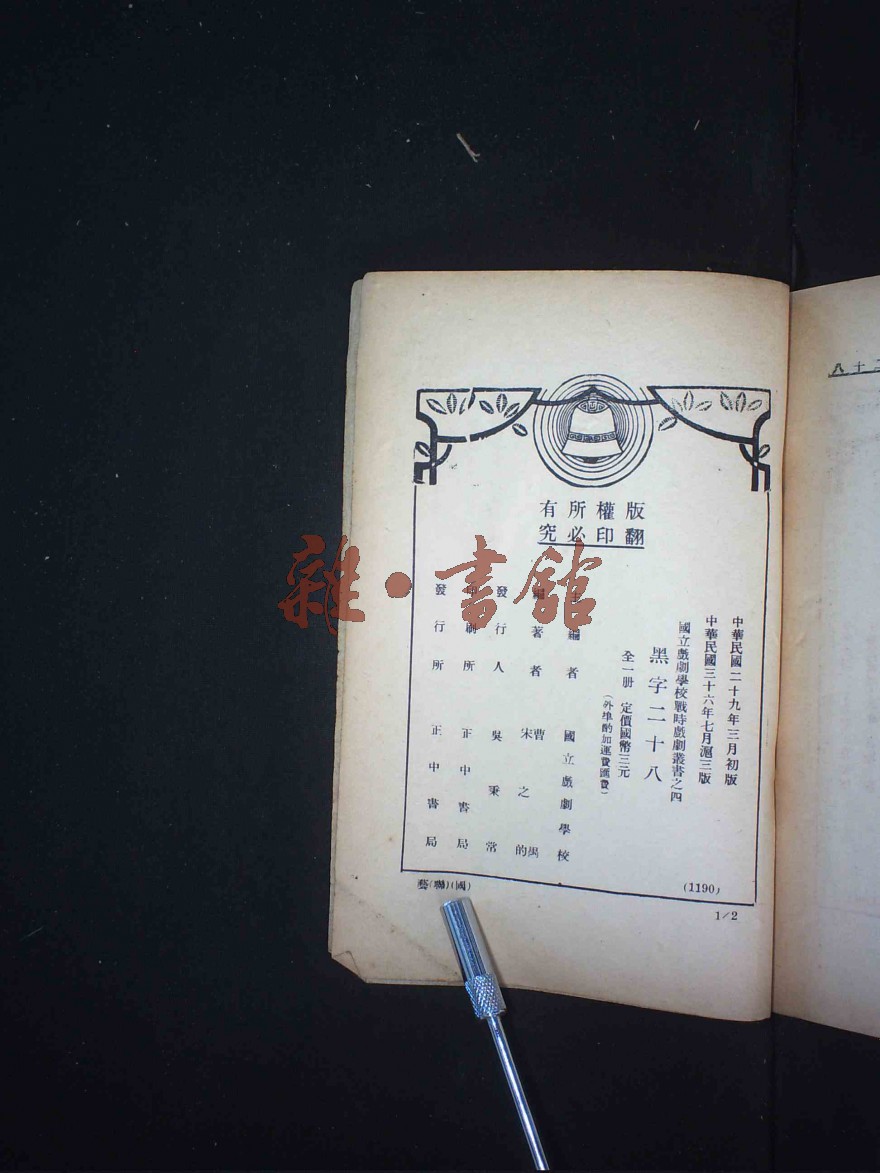 版權所有
翻印必究
中華民國二十九年三月初版
中華民國三十六年七月滬三版
國立戲劇學校戰時戲劇叢書之四
黑字二十八
全一册 定價國幣三元
(外埠酌加運費匯費)
主編者 國立戲劇學校
編著者 曹禺 宋之的
發行人 吳秉常
印刷所 正中書局
發行所 正中書局
(1190)
藝(聯)(國)
1/2
二十八
雜·書館